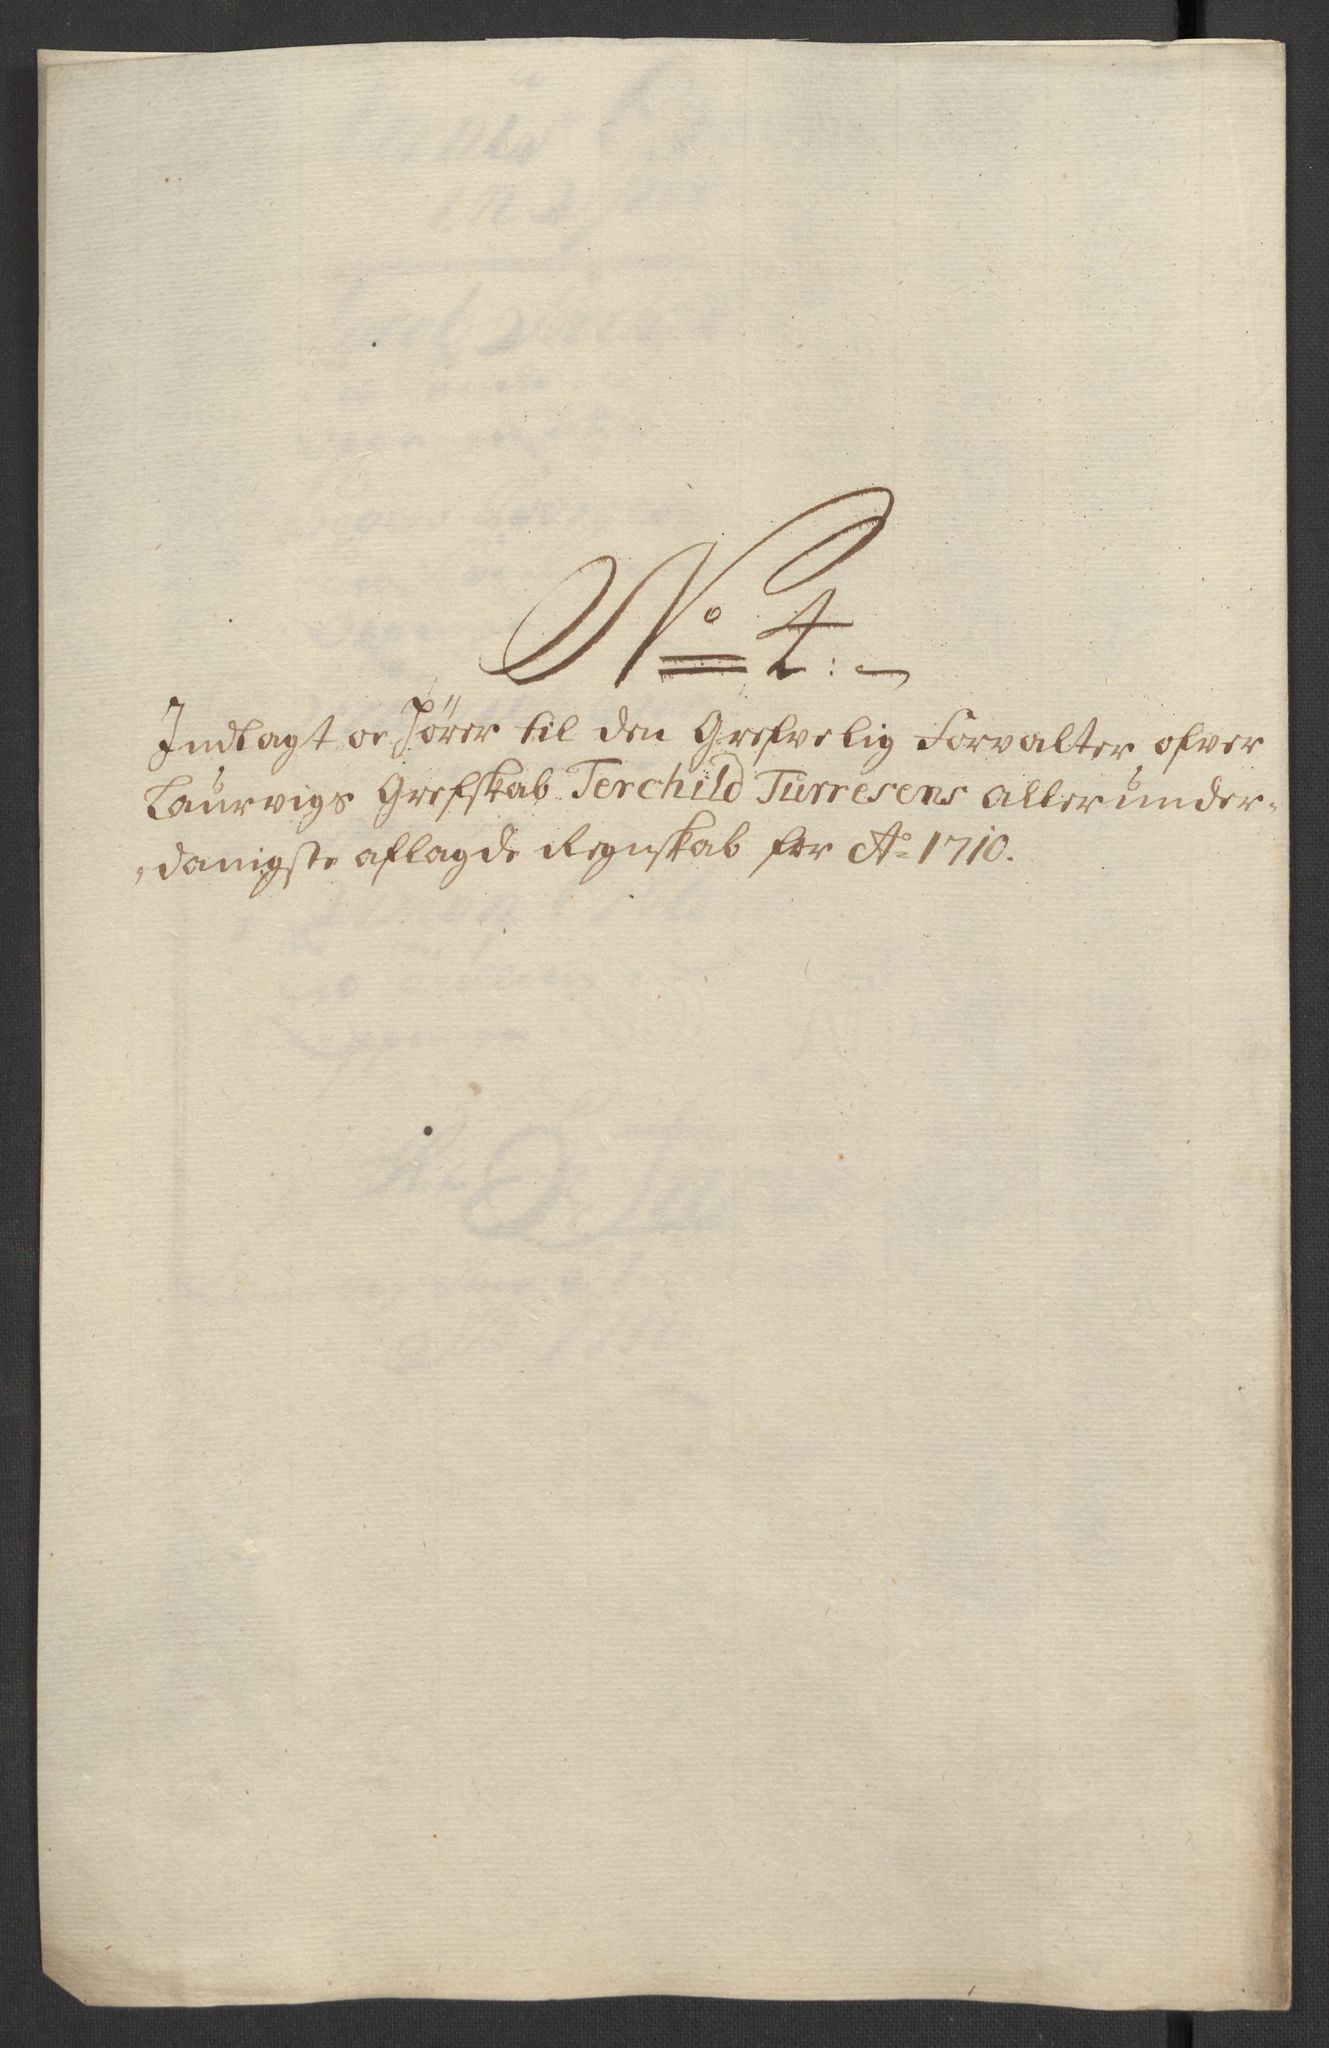 No 4:
Indlagt oc hörer til den Grefvelig Forvalter ofver
Laurvigs Grefskab Terchild Turresens allerunder-
danigste aflagde Regnskab for Ao 1710.